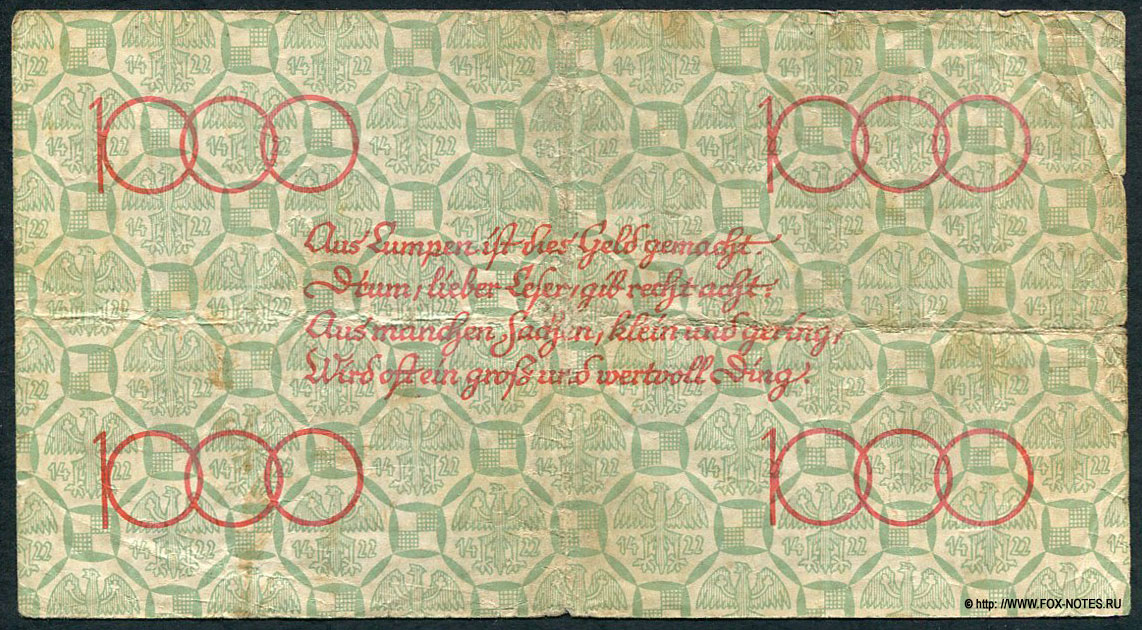 1000 1000
Aus Lumpen ist dies Geld gemacht.
Drum, lieber Leser, gib recht acht:
Aus manchen Sachen, klein und gering,
Wird oft ein groß und wertvoll Ding.
1000 1000
14 22
© http: // WWW.FOX-NOTES.RU